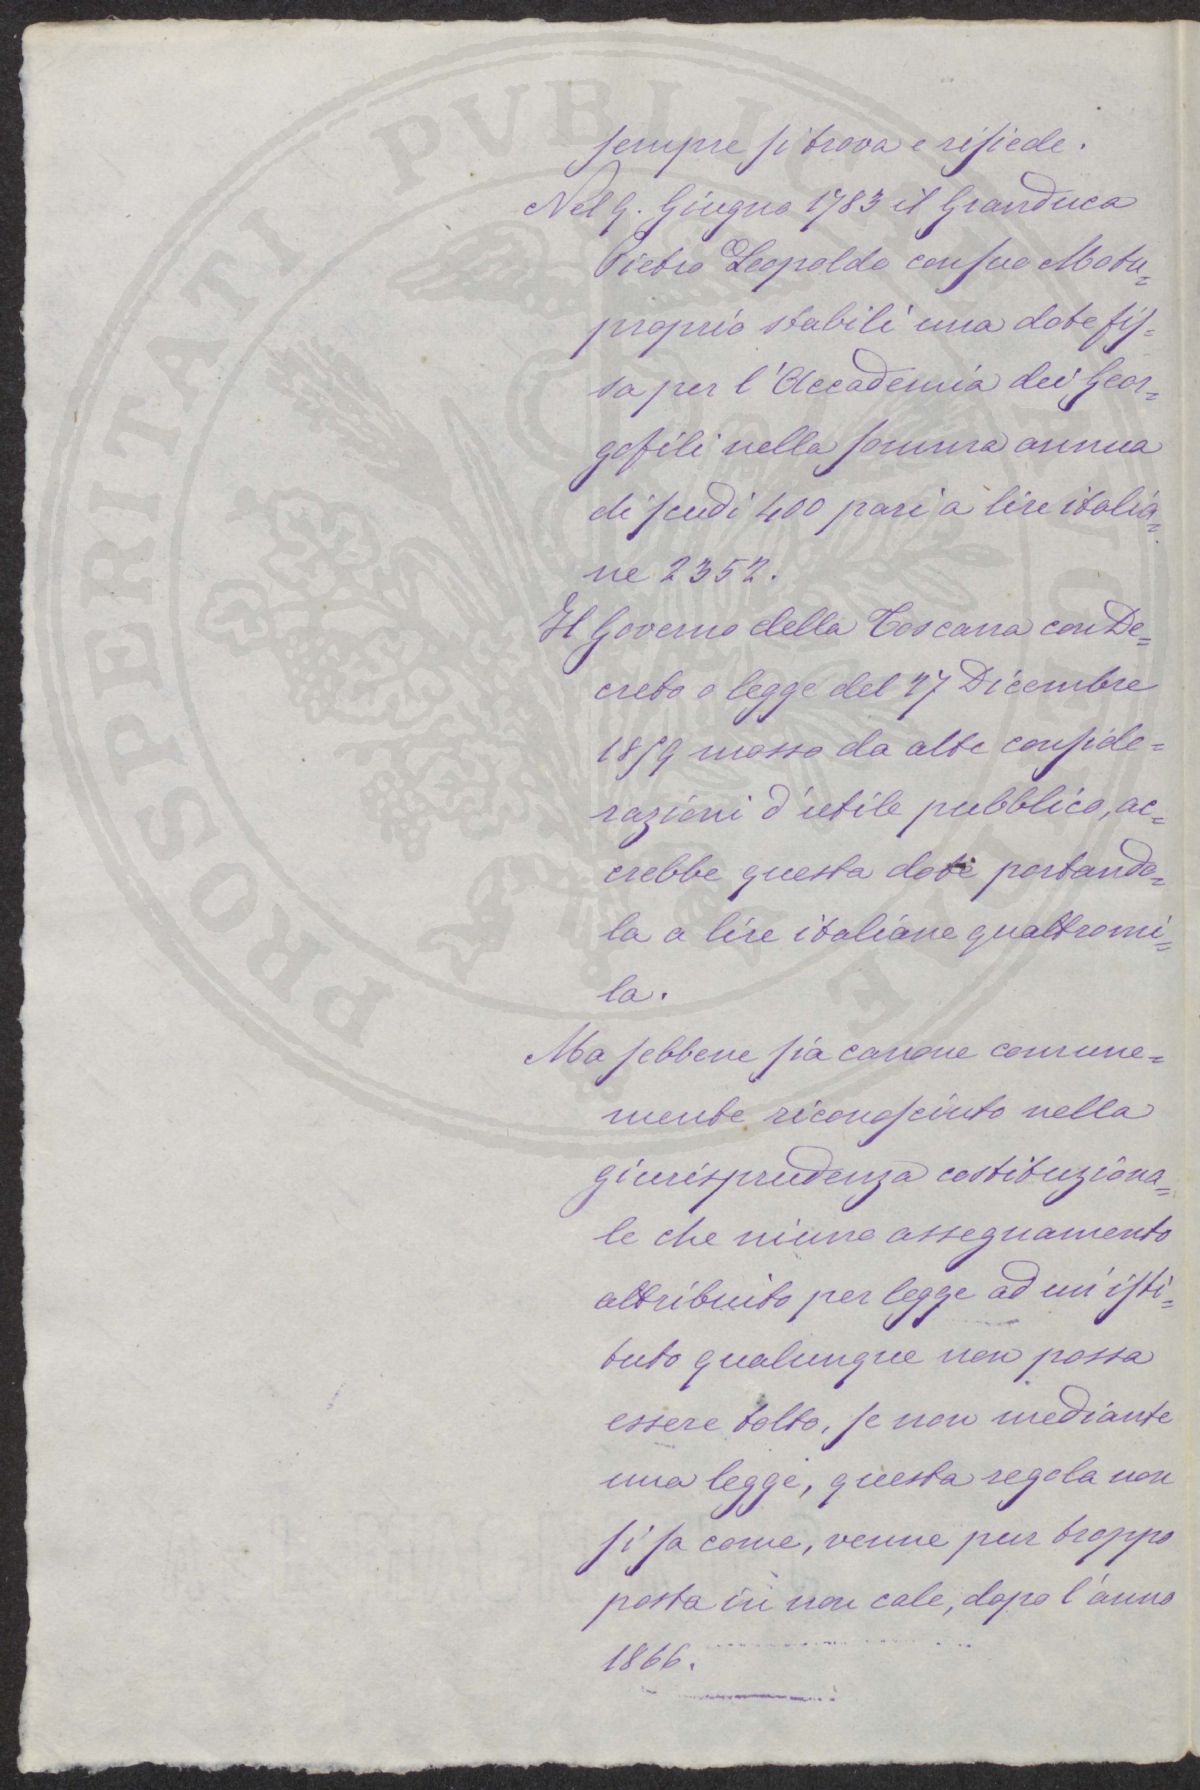 sempre si trova e risiede.
Nel 9. Giugno 1783 il Granduca
Pietro Leopoldo con suo Motu=
proprio stabilì una dote fis=
sa per l'Accademia dei Geor=
gofili nella somma annua
di scudi 400 pari a lire italia=
ne 2352.
Il Governo della Toscana con De=
creto o legge del 27 Dicembre
1859 mosso da alte conside=
razioni d'utile pubblico, ac=
crebbe questa dote portando=
la a lire italiane quattromi=
la.
Ma sebbene sia canone comune=
mente riconosciuto nella
giurisprudenza costituziona=
le che niuno assegnamento
attribuito per legge ad un'isti=
tuto qualunque non possa
essere tolto, se non mediante
una legge, questa regola non
si sa come, venne pur troppo
posta in non cale, dopo l'anno
1866.
PROSPERITATI PVBLIC